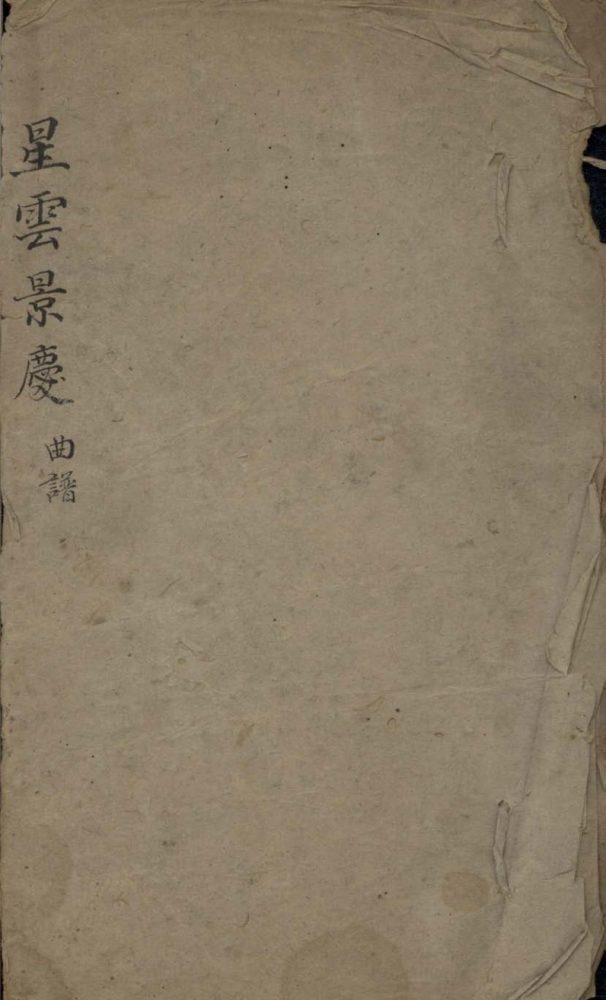 星雲景慶曲譜